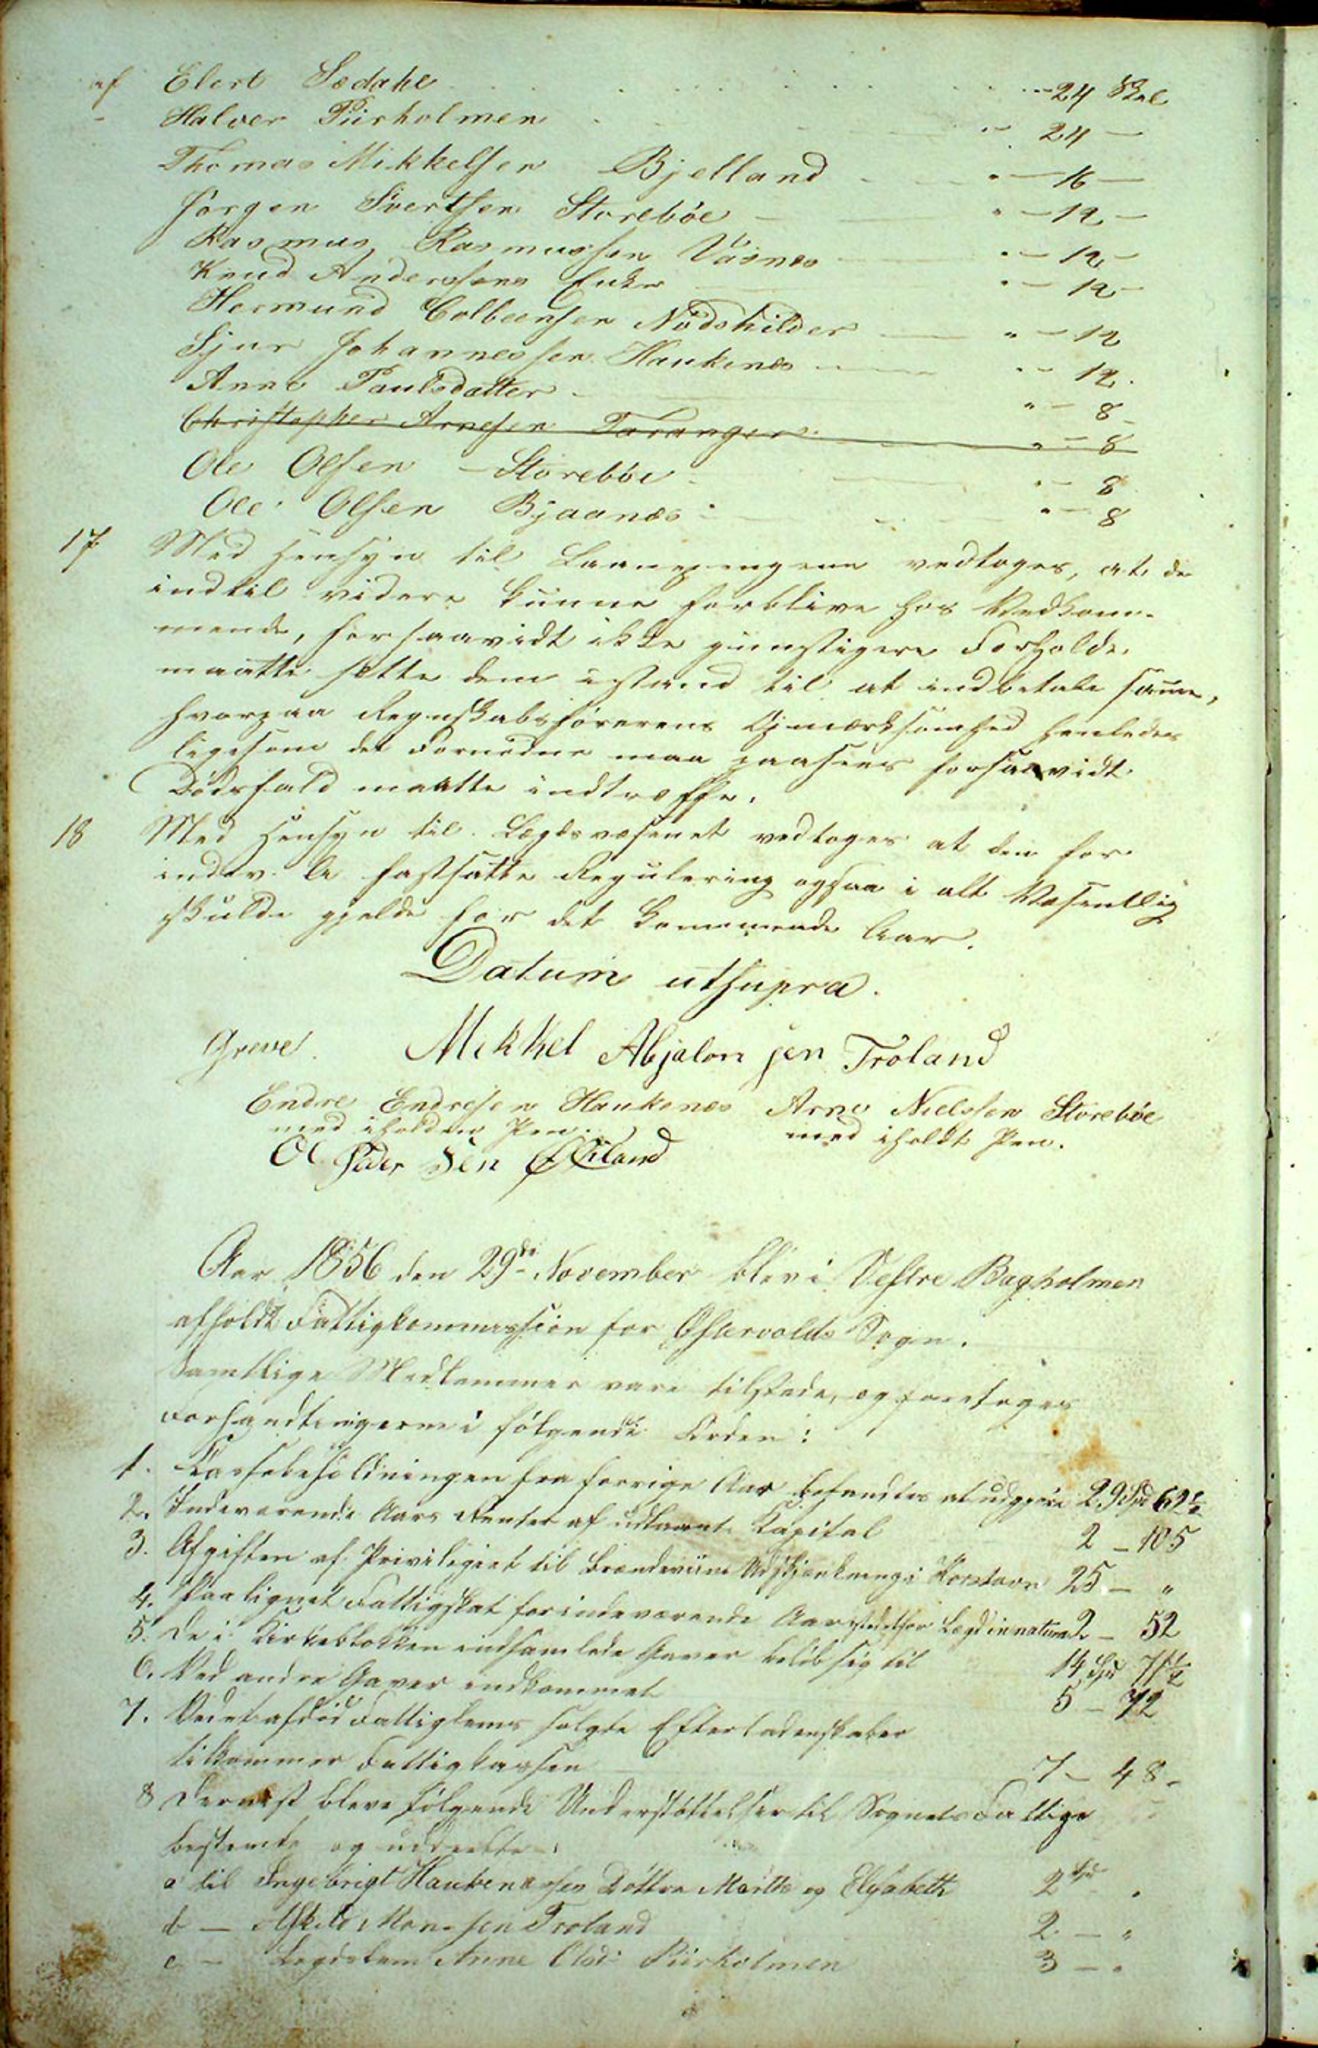 af Elert Sædahl - 24 Skl
- Halver Piirholmen " - 24 -
Thomas Mikkelsen Bjelland " - 16 -
Jørgen Sivertsen Storebøe " - 12 -
Rasmus Rasmussen Vasnes " - 12 -
Knud Anderssens Enke " - 12 -
Hermund Colbensen Nødskilder " - 12
Sjur Johannessen Haukenæs " - 12.
Anne Paulsdatter " - 8
Christopher Arnesen Taranger " - 8
Ole Olsen Storebøe " - 8
Ole Olsen Bjaanæs " - 8
17 Med Hensyn til Laanepengene vedtoges, at de
indtil videre kunne forblive hos Vedkom-
mende, forsaavidt ikke gunstigere Forholde
maatte sette dem istand til at indbetale samme,
hvorpaa Regnskabsførerens Opmærksomhed henledes
ligesom det Fornødne maa paasees forsaavidt
Dødsfald maatte indtræffe.
18 Med Hensyn til Lægdsvæsenet vedtoges at den for
indev. Aar fastsatte Regulering ogsaa i alt Væsentlig
skulde gjelde for det kommende Aar.
Datum utsupra.
Greve. Mikkel Absalonsen Troland
Endre Endresen Haukenæs Arne Nielssen Storebøe
med iholden Pen. med iholdt Pen.
Ol Pedersen
Aar 1856 den 29de November blev i Vestre Bagholmen
afholdt Fattigkommission for Østervolds Sogn.
Samtlige Medlemmer vare tilstede, og foretoges
Forhandlingerne i følgende Orden:
1. Kassebeholdningen fra forrige Aar befandtes at udgjøre 29 Spd 62 1/2
2. Indeværende Aars Renter af udlaant Kapital 2 - 105
3. Afgiften af Privilegiet til Brændeviins Udskjænkning i Korshavn 25 - "
4. Paalignet Fattigskat for indeværende Aar istedetfor Lægd in natura 2 - 52
5. De i Kirkeblokken indsamlede Gaver beløb sig til 14 Spd 71 1/2
6. Ved andre Gaver indkommet 5 - 72
7. Ved et afdød Fattiglems solgte Efterladenskaber
tilkommer Fattigkassen 7 - 48 -
8 Dernæst bleve følgende Understøttelser til Sognets Fattige
bestemte og uddeelte:
a til Ingebrigt Haukenæsses Døttre Marthe og Elisabeth 2 Spd "
b - Askild Monssen Troland 2 - "
c - Legdslem Anne Olsd: Piirholmen 3 - "